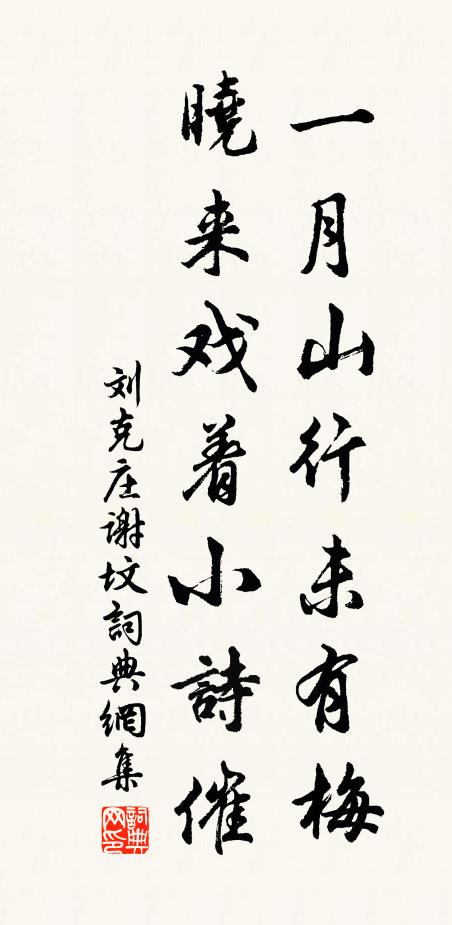 一月山行未有梅
曉来戏着小詩催
刘克庄谢坟詞典網集
詞典网印